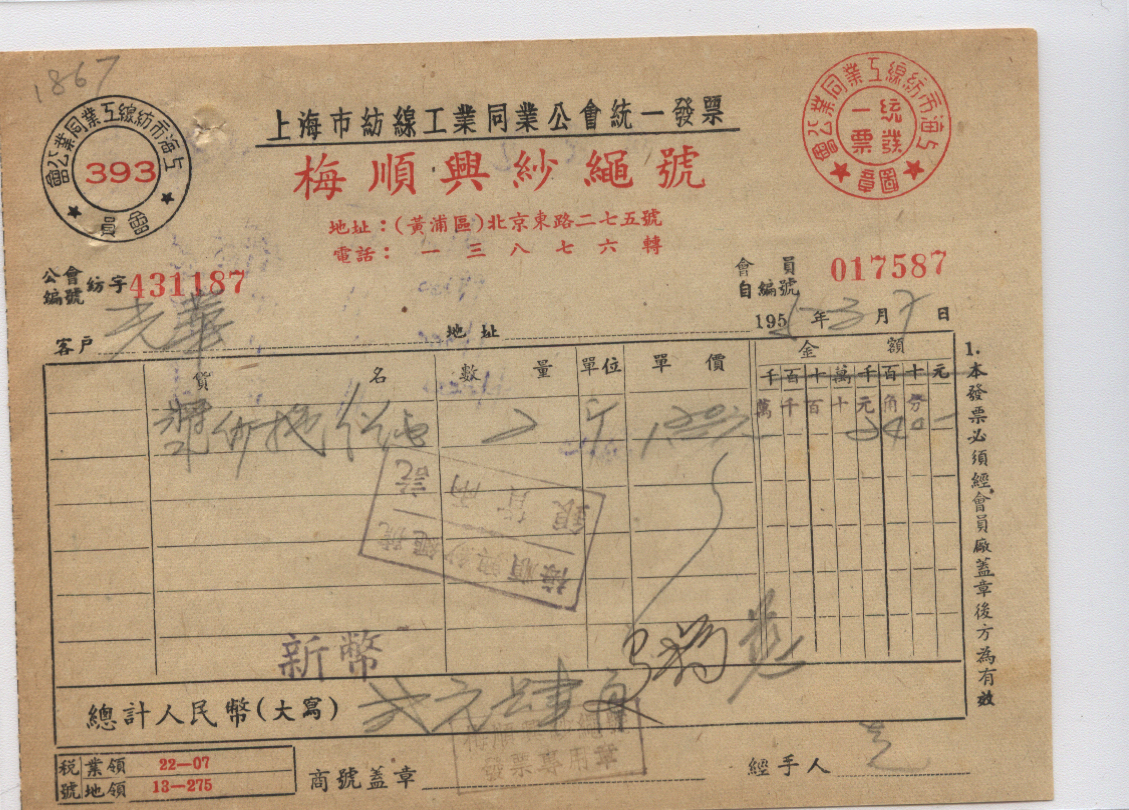 1867
上海市紡線工業同業公會
393
會員
上海市紡線工業同業公會統一發票
上海市紡線工業同業公會
統一發票
圖章
梅順興紗繩號
地址：(黃浦區)北京東路二七五號
電話：一三八七六轉
公會編號 紡字 431187
會員自編號 017587
195 年 3 月 7 日
客戶 光華 地址
貨名 數量 單位 單價 金額
千百十萬千百十元
萬千百十元角分
2 斤
梅順興紗繩號
銀貨兩訖
新幣
總計人民幣(大寫) 弍元肆角
稅號 業領 22—07
地領 13—275
商號蓋章
梅順興紗繩號
發票專用章
經手人
1.本發票必須經會員廠蓋章後方為有效